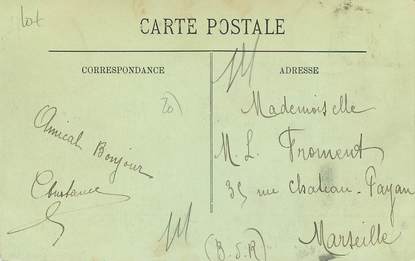 Lot
CARTE POSTALE
CORRESPONDANCE
ADRESSE
20)
Amical Bonjour
Constance
Mademoiselle
M L. Froment
35 rue Chateau-Payan
Marseille
(B-d-R)